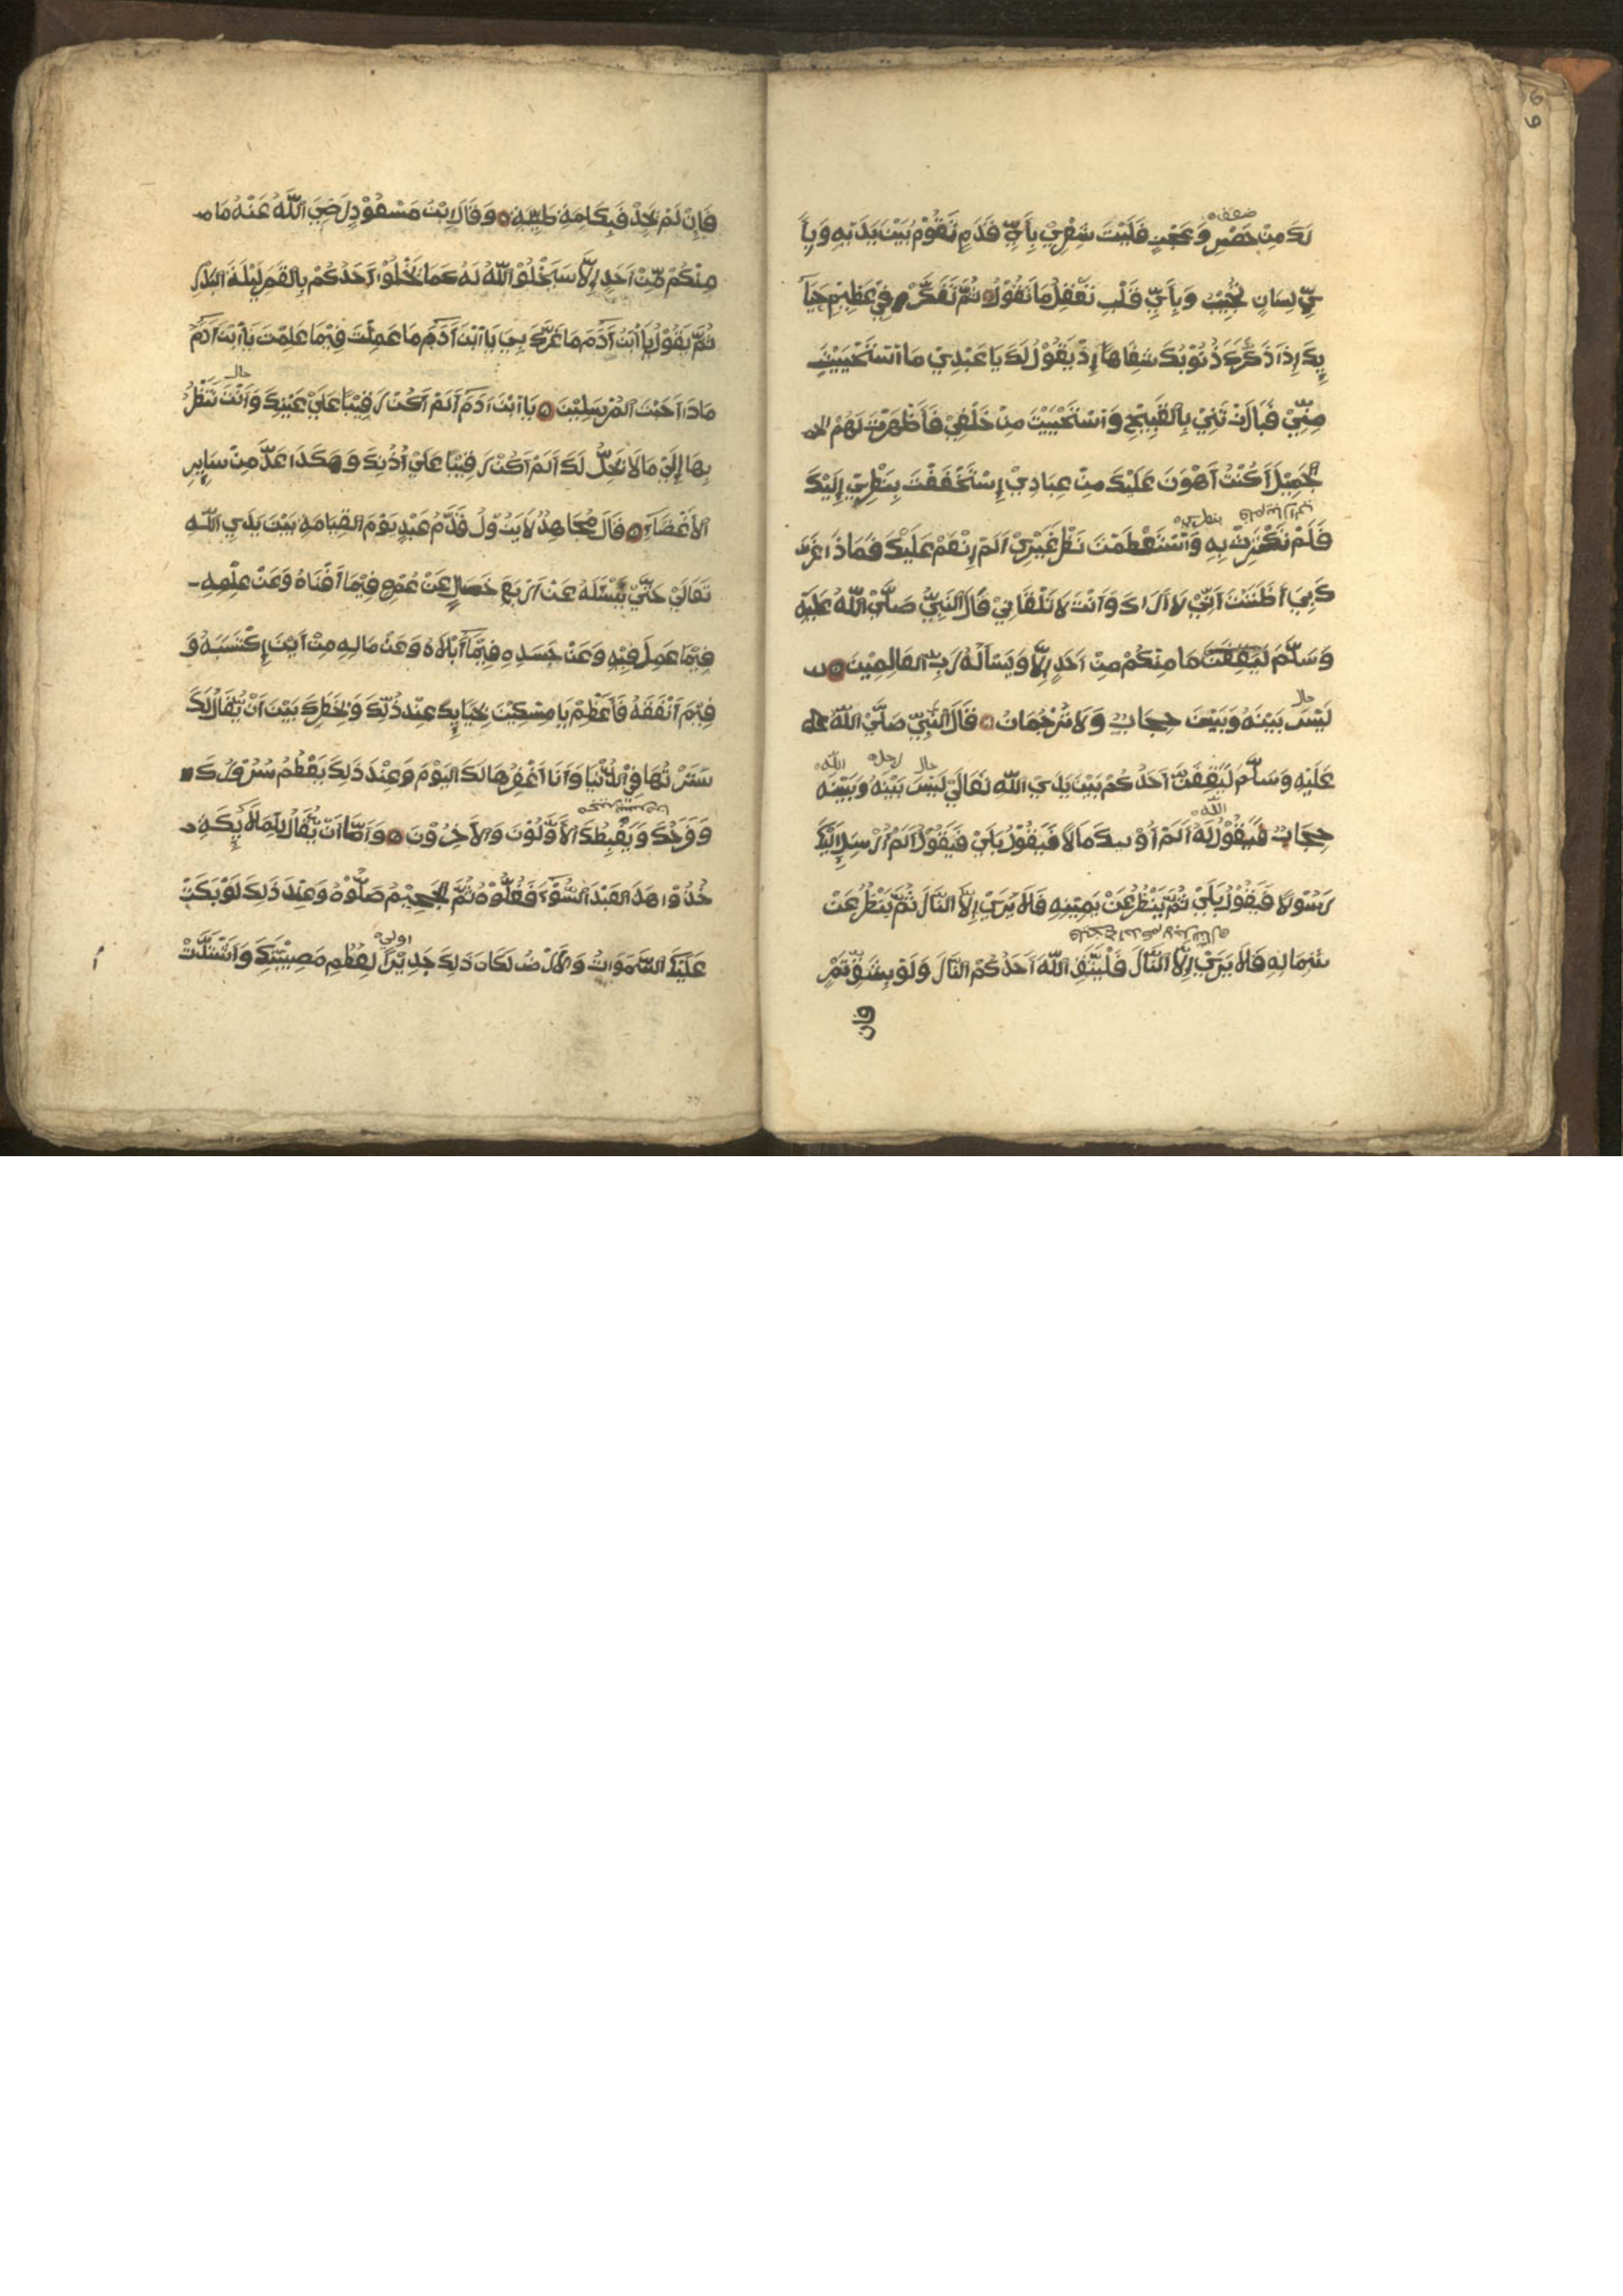 ضعف
لَكَ مِنْ حَصْرٍ وَعَجْزٍ فَلَيْتَ شِعْرِيْ بِأَيِّ قَدَمٍ تَقُوْمُ بَيْنَ يَدَيْهِ وَبِأَ
يِّ لِسَانٍ تُجِيْبُ وَبِأَيِّ قَلْبٍ تَعْقِلُ مَا تَقُوْلُ ثُمَّ تَفَكَّرْ فِيْ عَظِيْمِ حَيَآ
ئِكَ إِذَا ذَكَّرَكَ ذُنُوْبَكَ شِفَاهًا إِذْ يَقُوْلُ لَكَ يَا عَبْدِيْ مَا اسْتَحْيَيْتَ
مِنِّيْ فَبَارَزْتَنِيْ بِالْقَبِيْحِ وَاسْتَحْيَيْتَ مِنْ خَلْقِيْ فَأَظْهَرْتَ لَهُمْ
الْجَمِيْلَ أَكُنْتُ أَهْوَنَ عَلَيْكَ مِنْ عِبَادِيْ إِسْتَخْفَفْتَ بِنَظَرِيْ إِلَيْكَ
بنظري
فَلَمْ تَكْتَرِثْ بِهِ وَاسْتَعْظَمْتَ نَظَرَ غَيْرِيْ أَلَمْ اِنْعَمْ عَلَيْكَ فَمَاذَا غَرَّ
كَ بِيَ أَظَنَنْتَ أَنِّيْ لَا أَرَاكَ وَأَنْتَ لَا تَلْقَانِيْ قَالَ النَّبِيُّ صَلَّى اللّٰهُ عَلَيْهِ
وَسَلَّمَ مَا مِنْكُمْ مِنْ اَحَدٍ اِلَّا وَيَسْأَلُهُ رَبُّ الْعَالَمِيْنَ
حال
لَيْسَ بَيْنَهُ وَبَيْنَ حِجَابٌ وَلَا تَرْجُمَانٌ قَالَ النَّبِيُّ صَلَّى اللّٰهُ
حال رجل الله
عَلَيْهِ وَسَلَّمَ لَيَقِفَنَّ أَحَدُكُمْ بَيْنَ يَدَيِ اللّٰهِ تَعَالَى لَيْسَ بَيْنَهُ وَبَيْنَهُ
الله
حِجَابٌ فَيَقُوْلُ لَهُ أَلَمْ أُوْتِيكَ مَالًا فَيَقُوْلُ بَلَى فَيَقُوْلُ أَلَمْ أُرْسِلْ إِلَيْكَ
رَسُوْلًا فَيَقُوْلُ بَلَى ثُمَّ يَنْظُرُ عَنْ يَمِيْنِهِ فَلَا يَرَى إِلَّا النَّارَ ثُمَّ يَنْظُرُ عَنْ
شِمَالِهِ فَلَا يَرَى إِلَّا النَّارَ فَلْيَتَّقِ اللّٰهَ أَحَدُكُمْ النَّارَ وَلَوْ بِشِقِّ تَمْرٍ
فان
فَإِنْ لَمْ يَجِدْ فَبِكَلِمَةٍ طَيِّبَةٍ وَقَالَ ابْنُ مَسْعُوْدٍ رَضِيَ اللّٰهُ عَنْهُ مَا
مِنْكُمْ مِّنْ أَحَدٍ إِلَّا سَيَخْلُو اللّٰهُ لَهُ كَمَا يَخْلُوْ أَحَدُكُمْ بِالْقَمَرِ لَيْلَةَ الْبَدْرِ
ثُمَّ يَقُوْلُ يَا ابْنَ أَدَمَ مَا غَرَّكَ بِيَ يَا ابْنَ أَدَمَ مَا عَمِلْتَ فِيْمَا عَلِمْتَ يَا ابْنَ أَدَمَ
حال
مَاذَا أَجَبْتَ الْمُرْسَلِيْنَ يَا ابْنَ أَدَمَ أَلَمْ أَكُنْ رَقِيْبًا عَلَى عَيْنِكَ وَأَنْتَ تَنْظُرُ
بِهَا إِلَى مَا لَا يَحِلُّ لَكَ أَلَمْ أَكُنْ رَقِيْبًا عَلَى أُذُنِكَ وَهَكَذَا عَدَّ مِنْ سَايِرِ
الْأَعْضَاءِ قَالَ مُجَاهِدٌ لَا يَزُوْلُ قَدَمُ عَبْدٍ يَوْمَ الْقِيَامَةِ بَيْنَ يَدَيِ اللّٰهِ
تَعَالَى حَتَّى يَسْئَلَهُ عَنْ أَرْبَعِ خِصَالٍ عَنْ عُمْرِهِ فِيْمَا أَفْنَاهُ وَعَنْ عِلْمِهِ
فِيْمَا عَمِلَ فِيْهِ وَعَنْ جَسَدِهِ فِيْمَا أَبْلَاهُ وَعَنْ مَالِهِ مِنْ أَيْنَ إِكْتَسَبَهُ وَ
فِيْمَ أَنْفَقَهُ فَأَعْظِمْ يَا مِسْكِيْنُ بِحَيَائِكَ عِنْدَ ذَلِكَ وَبِخَطَرِكَ بَيْنَ أَنْ يُقَالَ لَكَ
سَتَرْتُهَا فِي الدُّنْيَا وَأَنَا أَغْفِرُهَا لَكَ الْيَوْمَ وَعِنْدَ ذَلِكَ يَعْظُمُ سُرُوْرُكَ
وَفَرَحُكَ وَيَغْبِطُكَ الْأَوَّلُوْنَ وَالْأَخِرُوْنَ وَأَمَّا أَنْ يُقَالَ لِلْمَلَائِكَةِ
خُذُوْا هَذَا الْعَبْدَ السُّوْءَ فَغُلُّوْهُ ثُمَّ الْجَحِيْمَ صَلُّوْهُ وَعِنْدَ ذَلِكَ لَوْ بَكَتْ
اولى
عَلَيْكَ السَّمَوَاتُ وَالْأَرْضُ لَكَانَ ذَلِكَ جَدِيْرًا لِعُظْمِ مَصِيْبَتِكَ وَاشْتَدَّتْ